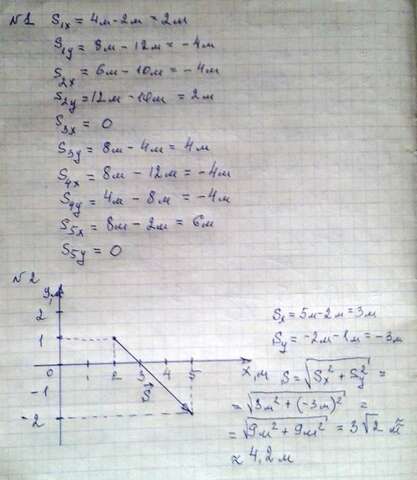 №1 S₁ₓ = 4м - 2м = 2м
S₁y = 8м - 12м = -4м
S₂ₓ = 6м - 10м = -4м
S₂y = 12м - 10м = 2м
S₃ₓ = 0
S₃y = 8м - 4м = 4м
S₄ₓ = 8м - 12м = -4м
S₄y = 4м - 8м = -4м
S₅ₓ = 8м - 2м = 6м
S₅y = 0
№2
y,м
2
1
0 1 2 3 4 5 x,м
-1
-2
S⃗
Sₓ = 5м - 2м = 3м
Sy = -2м - 1м = -3м
S = √(Sₓ² + Sy²) =
= √(3м² + (-3м)²) =
= √(9м² + 9м²) = 3√2 м ≈
≈ 4,2м